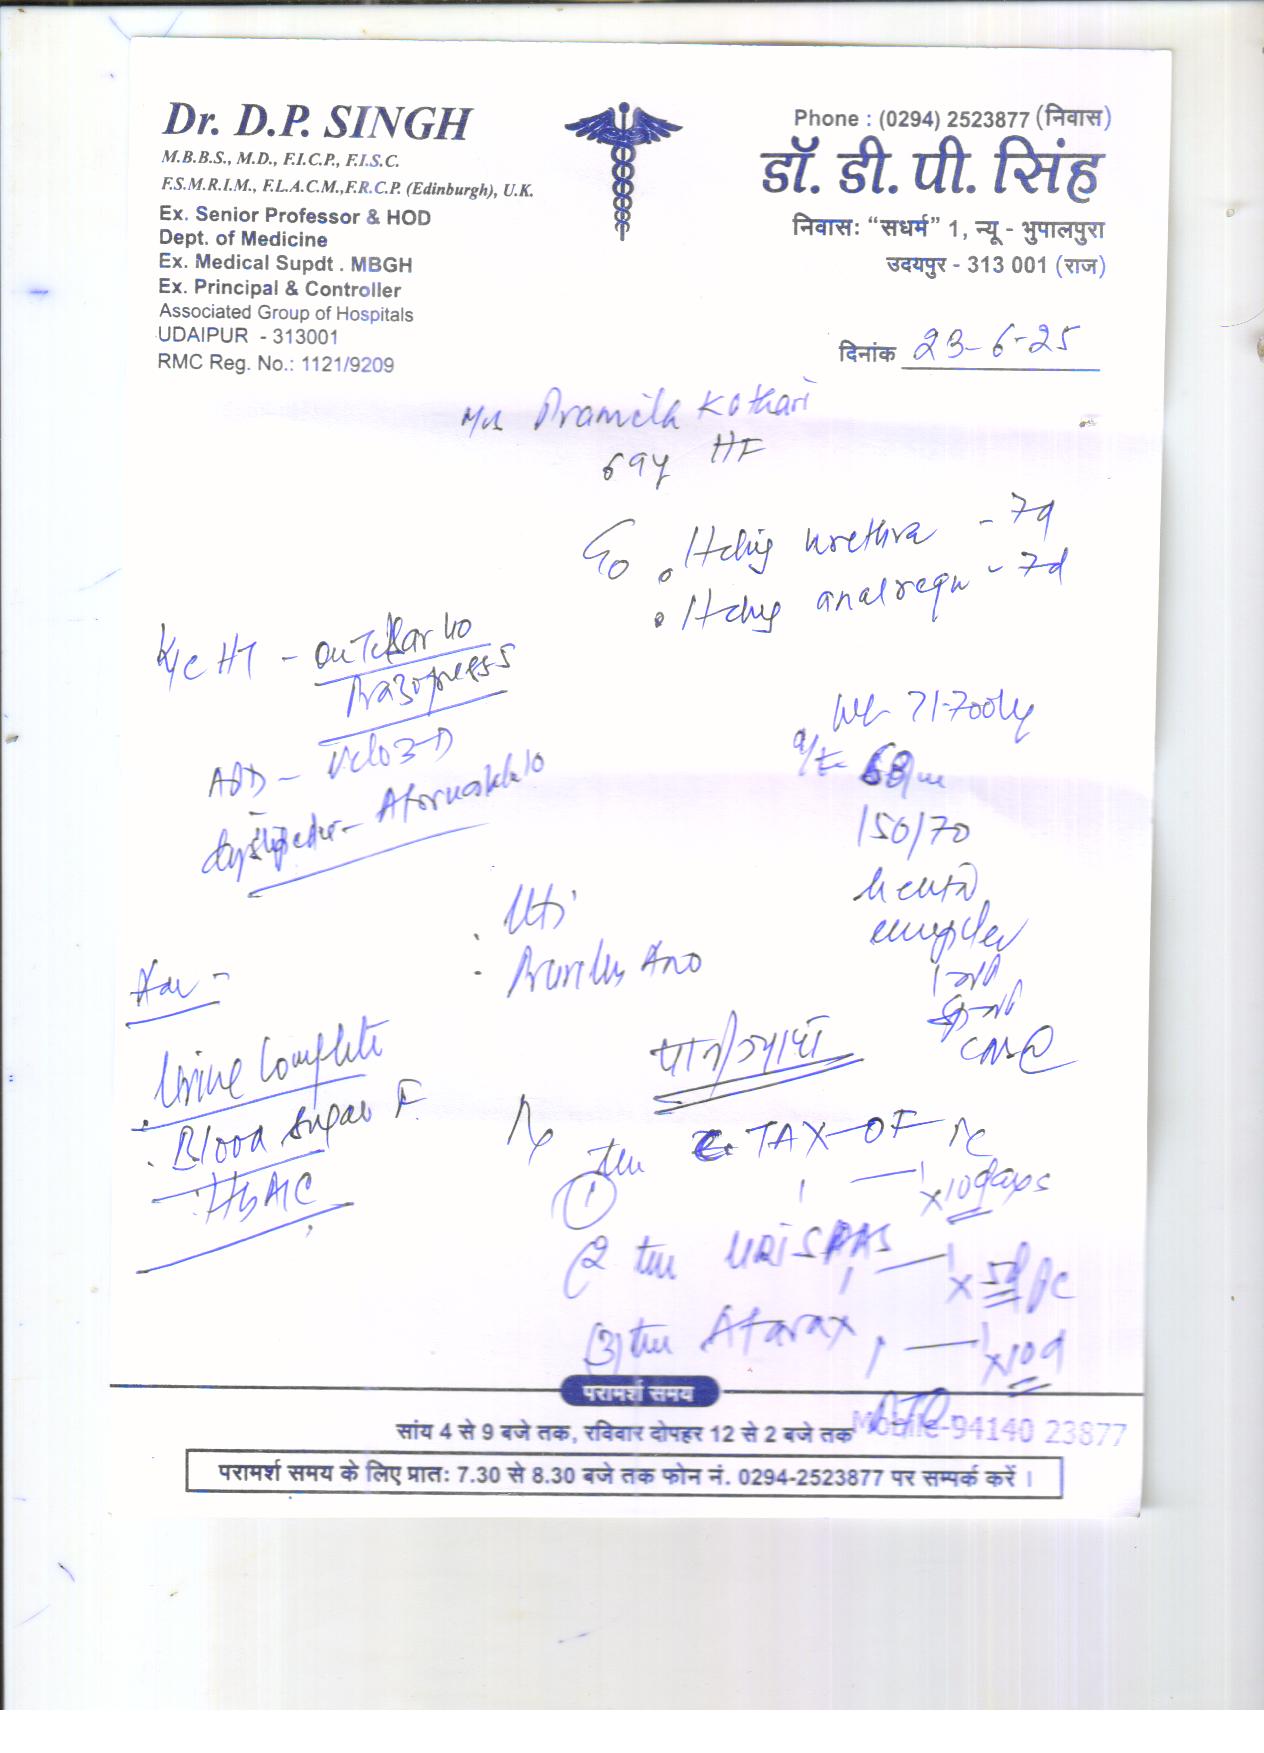 Dr. D.P. SINGH
M.B.B.S., M.D., F.I.C.P., F.I.S.C.
F.S.M.R.I.M., F.L.A.C.M.,F.R.C.P. (Edinburgh), U.K.
Ex. Senior Professor & HOD
Dept. of Medicine
Ex. Medical Supdt . MBGH
Ex. Principal & Controller
Associated Group of Hospitals
UDAIPUR - 313001
RMC Reg. No.: 1121/9209
Phone : (0294) 2523877 (निवास)
डॉ. डी. पी. सिंह
निवास: “सधर्म” 1, न्यू - भुपालपुरा
उदयपुर - 313 001 (राज)
दिनांक 23-6-25
Pramila Kothari
69y HF
C/o . Itching urethra - 7d
. Itching anal region - 7d
K/c HT - 40
Prazopress
AOD - Velo3-D
- 10
Wt 71.700kg
150/70
. UTI
. Pruritus Ano
Adv -
Urine Complete
. Blood Sugar F.
. HbA1C
CNS
Rx
① TAX-OF
1 — 1 x 10days
② URISPAS
1 — 1 x 5d PC
③ Atarax
1 — 1 x 10d
परामर्श समय
सांय 4 से 9 बजे तक, रविवार दोपहर 12 से 2 बजे तक
Mobile-94140 23877
परामर्श समय के लिए प्रातः 7.30 से 8.30 बजे तक फोन नं. 0294-2523877 पर सम्पर्क करें ।